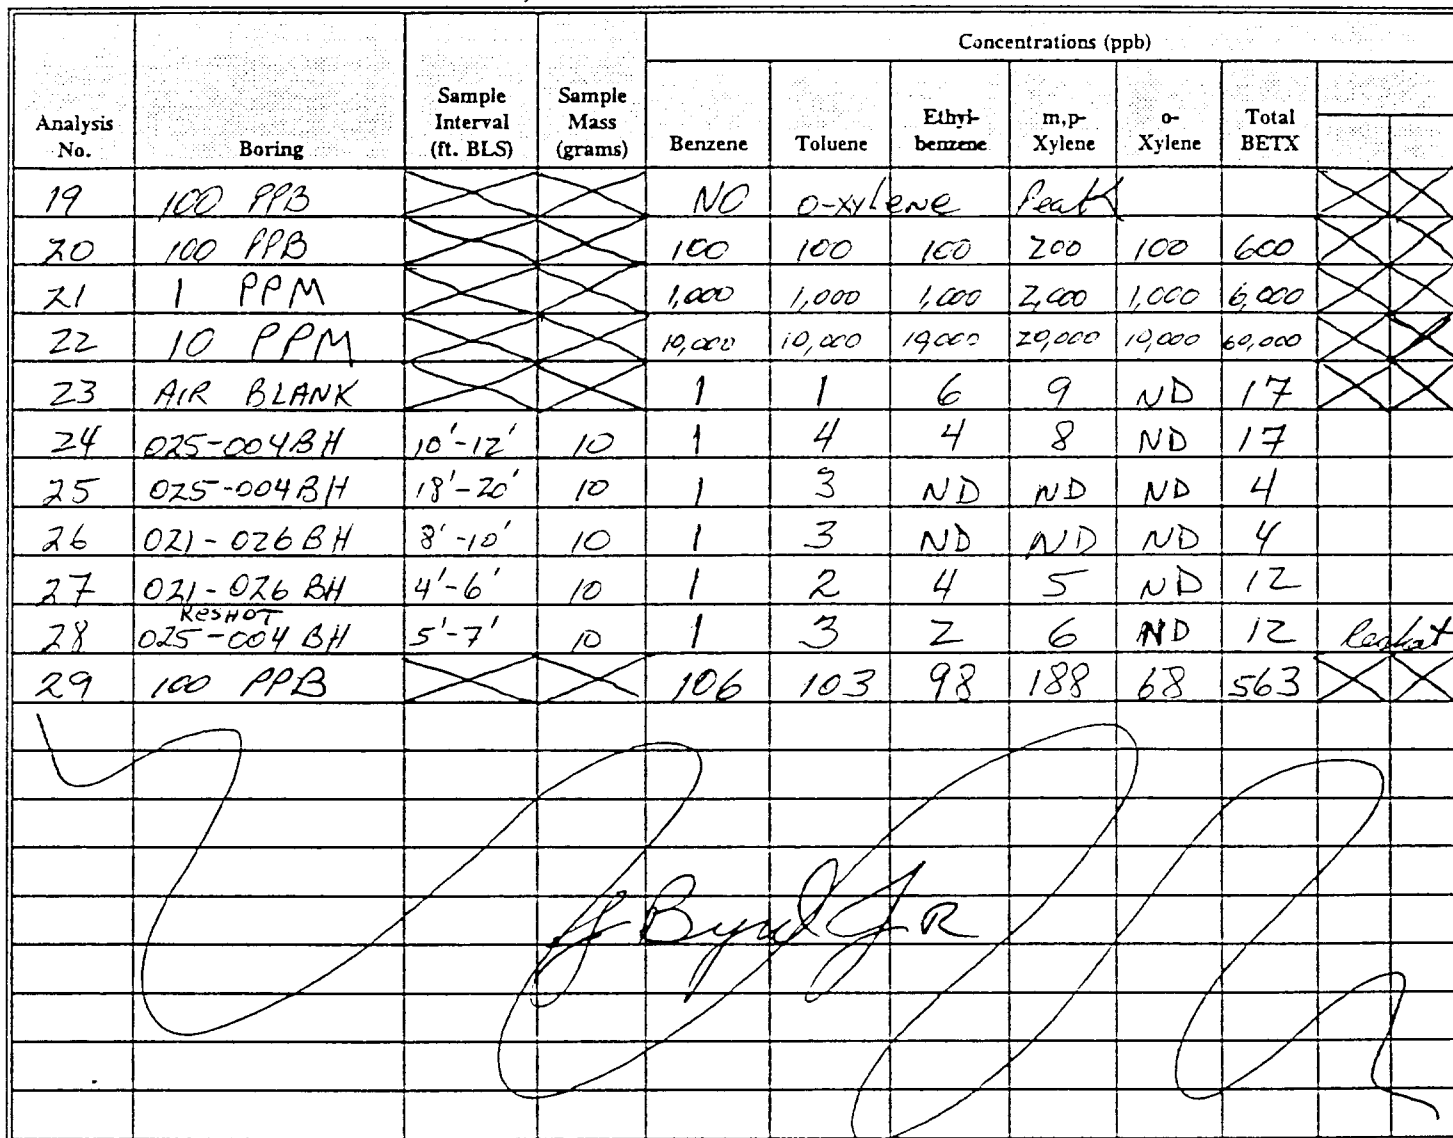 Concentrations (ppb)
Analysis No. Boring Sample Interval (ft. BLS) Sample Mass (grams) Benzene Toluene Ethyl-benzene m,p-Xylene o-Xylene Total BETX
19 100 PPB NO o-xylene Peak
20 100 PPB 100 100 100 200 100 600
21 1 PPM 1,000 1,000 1,000 2,000 1,000 6,000
22 10 PPM 10,000 10,000 10,000 20,000 10,000 60,000
23 AIR BLANK 1 1 6 9 ND 17
24 025-004BH 10'-12' 10 1 4 4 8 ND 17
25 025-004BH 18'-20' 10 1 3 ND ND ND 4
26 021-026BH 8'-10' 10 1 3 ND ND ND 4
27 021-026 BH 4'-6' 10 1 2 4 5 ND 12
RESHOT
28 025-004 BH 5'-7' 10 1 3 2 6 ND 12 Reshot
29 100 PPB 106 103 98 188 68 563
J Byrd JR